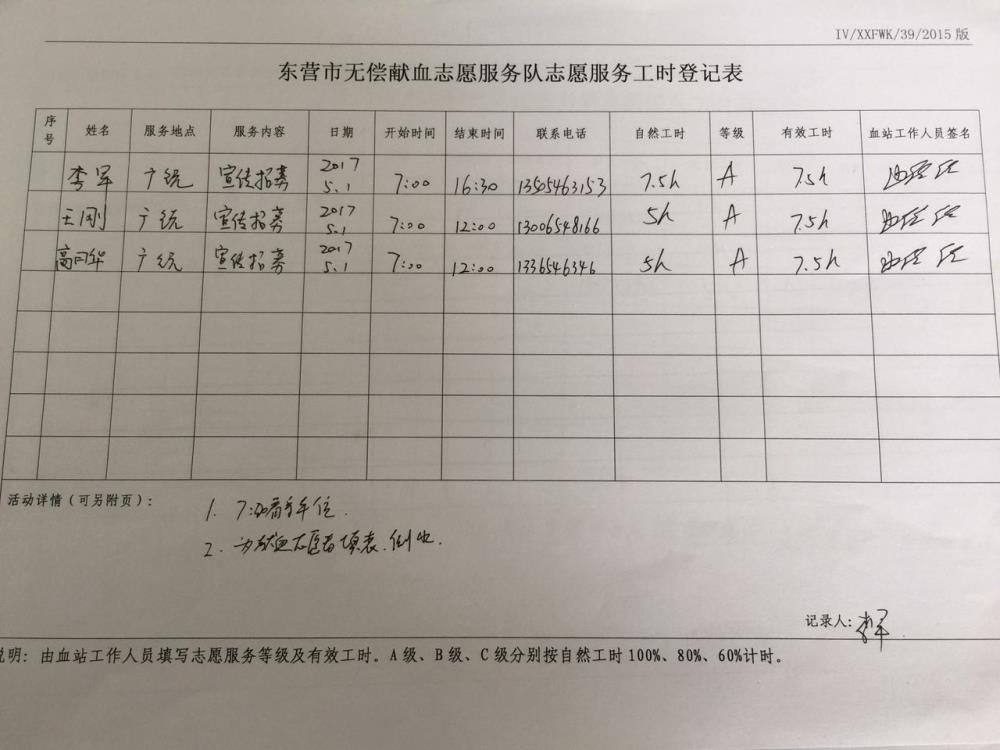 IV/XXFWK/39/2015版
东营市无偿献血志愿服务队志愿服务工时登记表
序号 姓名 服务地点 服务内容 日期 开始时间 结束时间 联系电话 自然工时 等级 有效工时 血站工作人员签名
李军 广饶 宣传招募 2017 5.1 7:00 16:30 13505463153 7.5h A 7.5h
王刚 广饶 宣传招募 2017 5.1 7:00 12:00 13006548166 5h A 7.5h
高同华 广饶 宣传招募 2017 5.1 7:00 12:00 1336546346 5h A 7.5h
活动详情(可另附页):
1. 7:00看车位.
2. 为献血志愿者填表.倒水.
记录人: 李军
说明: 由血站工作人员填写志愿服务等级及有效工时。A级、B级、C级分别按自然工时100%、80%、60%计时。